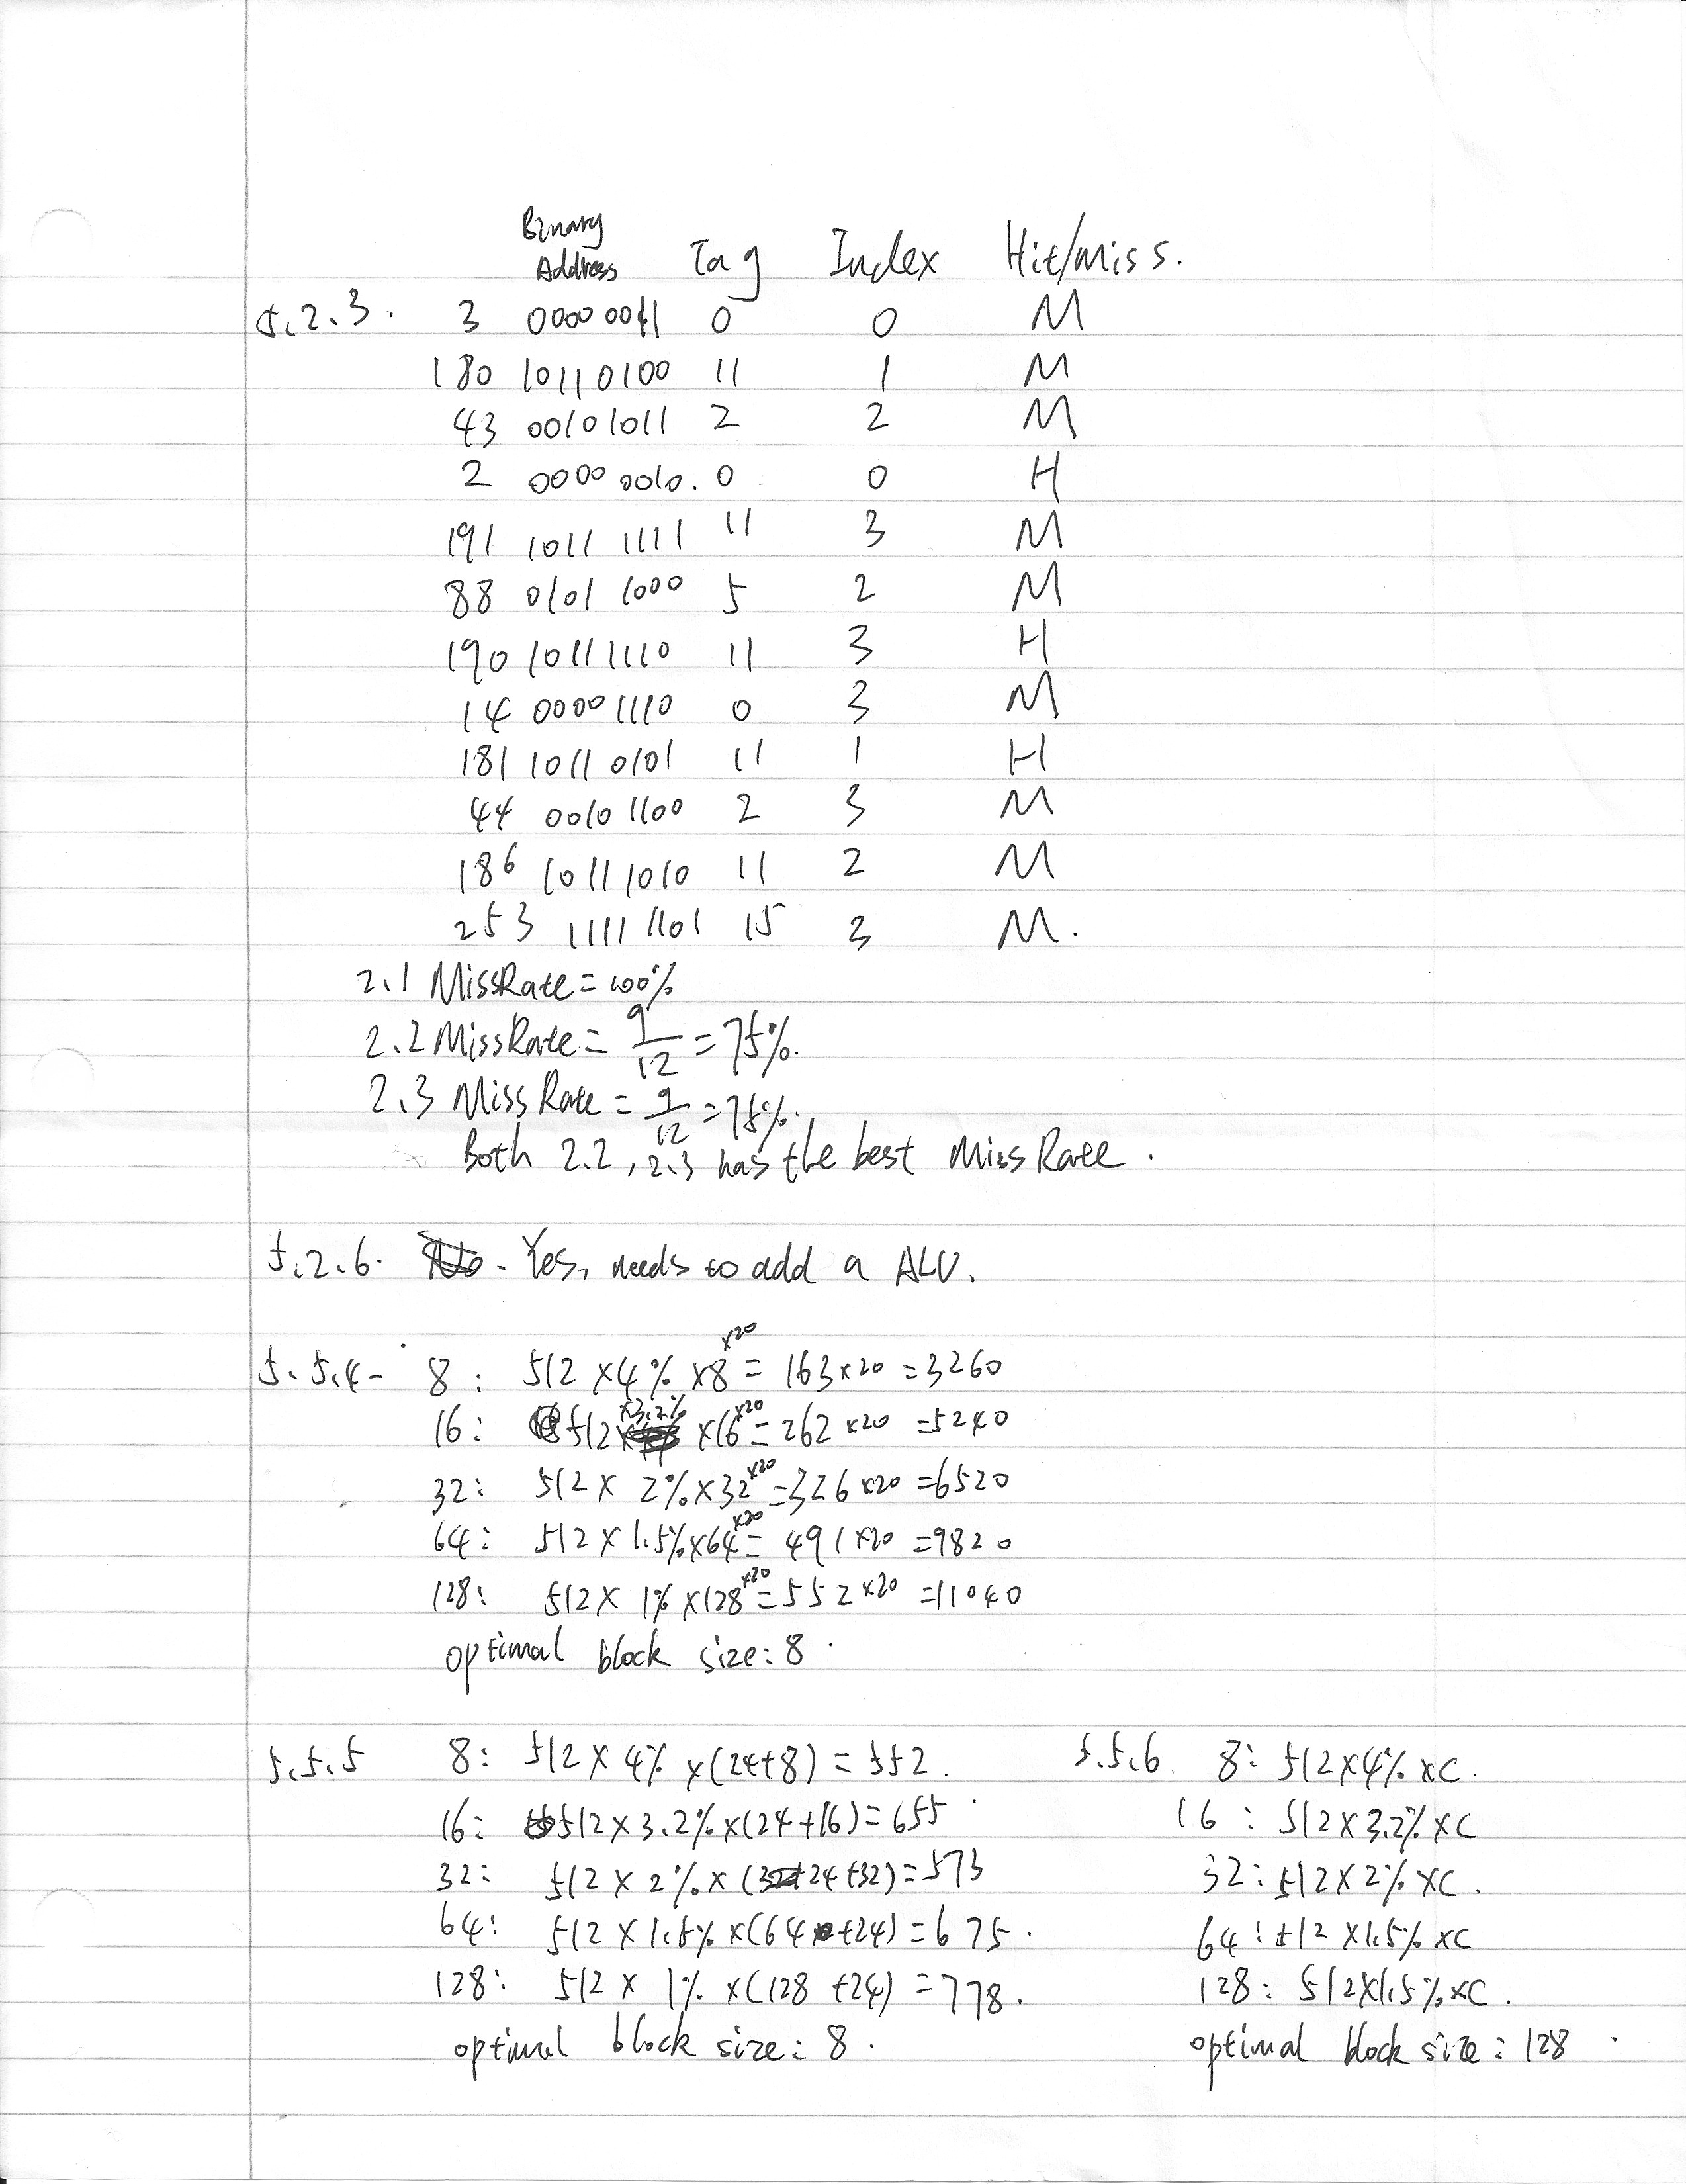 Binary
Address Tag Index Hit/Miss.
5.2.3. 3 0000 0011 0 0 M
180 10110100 11 1 M
43 00101011 2 2 M
2 0000 0010. 0 0 H
191 1011 1111 11 3 M
88 0101 1000 5 2 M
190 10111110 11 3 H
14 0000 1110 0 3 M
181 1011 0101 11 1 H
44 0010 1100 2 3 M
186 10111010 11 2 M
253 1111 1101 15 3 M.
2.1 MissRate = 100%
2.2 MissRate = 9/12 = 75%.
2.3 Miss Rate = 9/12 = 75%.
Both 2.2, 2.3 has the best Miss Rate.
5.2.6. Yes, needs to add a ALU.
5.5.4- 8: 512 x 4% x8 x20 = 163 x20 = 3260
16: 512 x3.2% x16 x20 = 262 x20 = 5240
32: 512 x 2% x32 x20 = 326 x20 = 6520
64: 512 x 1.5% x64 x20 = 491 x20 = 9820
128: 512 x 1% x128 x20 = 552 x20 = 11040
optimal block size: 8.
5.5.5 8: 512 x 4% x(24+8) = 552.
16: 512 x 3.2% x(24+16) = 655
32: 512 x 2% x (24+32) = 573
64: 512 x 1.5% x(64+24) = 675.
128: 512 x 1% x(128+24) = 778.
optimal block size: 8.
5.5.6. 8: 512x4% xC.
16: 512x3.2% xC
32: 512x2% xC.
64: 512 x1.5% xC
128: 512x1.5% xC.
optimal block size: 128.